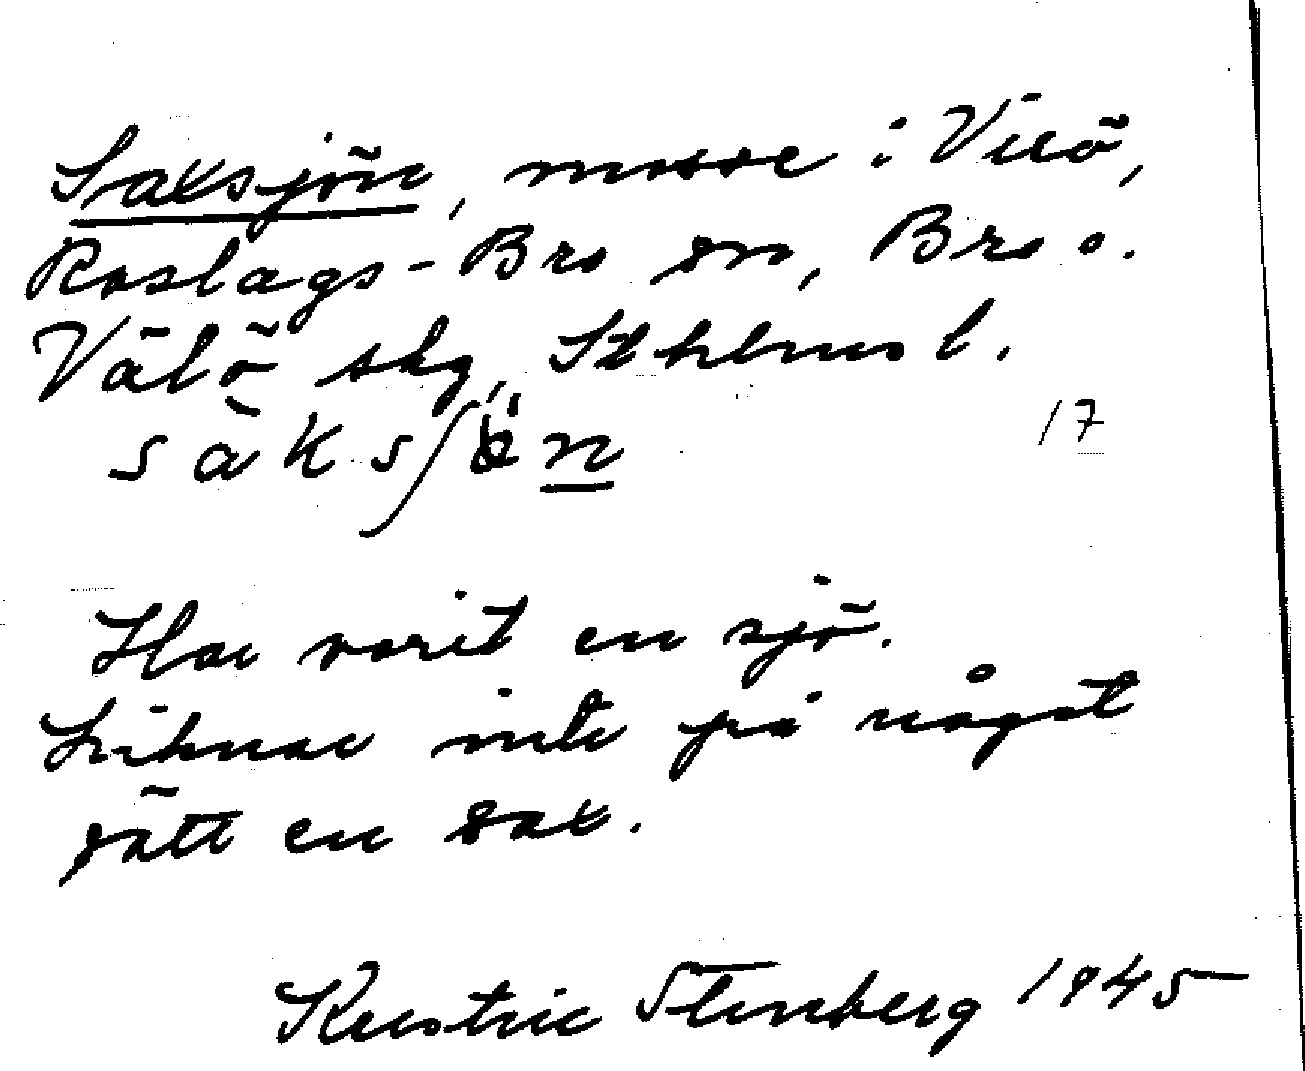 Saxsjön, mosse i Vilö,
Roslags-Bro sn, Bro o.
Välö skg, Sthlms l.
17
Har varit en sjö.
Liknar inte på något
sätt en sax.
Kerstin Stenberg 1945